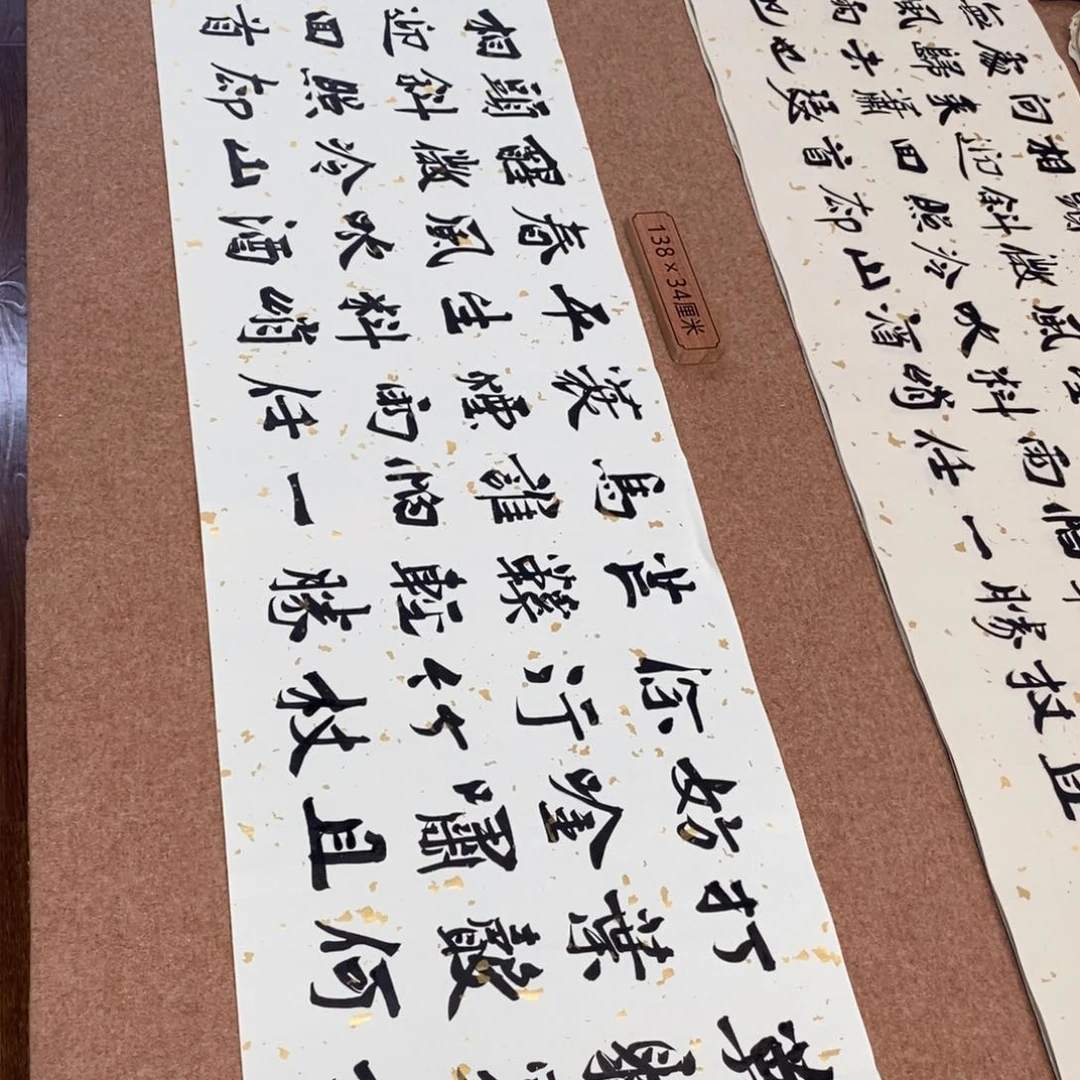 打葉聲何
妨吟嘯且
徐行竹杖
芒鞋輕勝
馬誰怕一
蓑煙雨任
平生料峭
春風吹酒
醒微冷山
頭斜照却
相迎回首
138×34厘米
且
杖
勝
怕一
雨任
料峭
風吹酒
微冷山
頭斜照却
相迎回首
向來蕭瑟
處歸去也
無風雨也